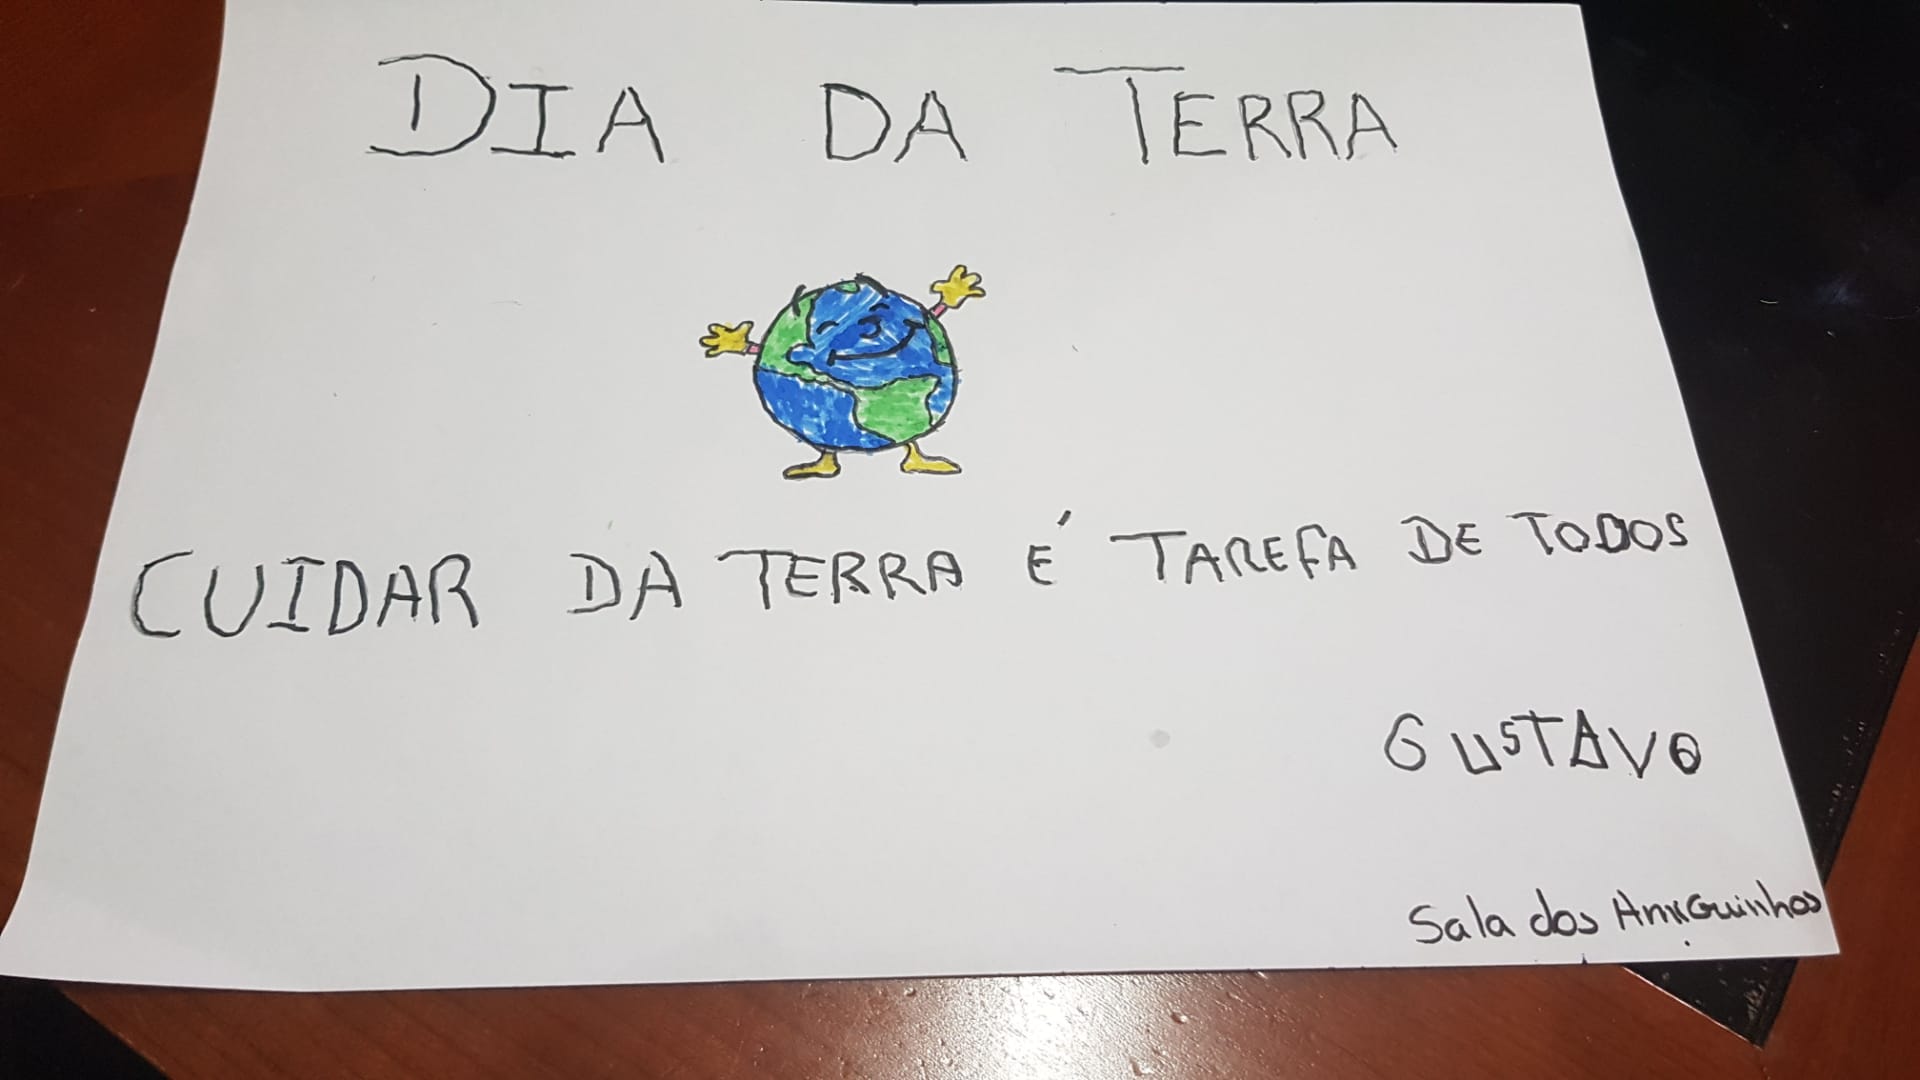 DIA DA TERRA
CUIDAR DA TERRA É TAREFA DE TODOS
GUSTAVO
Sala dos AmiGuinhos